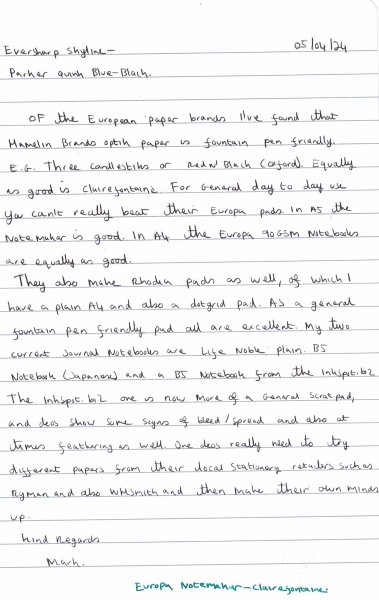 Eversharp Skyline- 05/04/24
Parker quink Blue-Black.
Of the European paper brands I've found that
Hamelin Brands optik paper is fountain pen friendly.
E.G. Three candlestiks or Red N' Black (Oxford). Equally
as good is Clairefontaine. For General day to day use
You can't really beat their Europa pads. In A5 the
Notemaker is good. In A4 the Europa 90GSM Notebooks
are equally as good.
They also make Rhodia pads as well, of which I
have a plain A4 and also a dotgrid pad. As a general
fountain pen friendly pad all are excellent. My two
current Journal Notebooks are Life Noble plain. B5
Notebook (Japanese) and a B5 Notebook from the Inkspit.biz
The Inkspit.biz one is now more of a General Scratpad,
and deos show some signs of bleed/spread and also at
times feathering as well. One deos really need to try
different papers from their local Stationery retailers such as
Ryman and also WHSmith and then make their own minds
up.
Kind Regards
Mark.
Europa Notemaker-Clairefontaine.